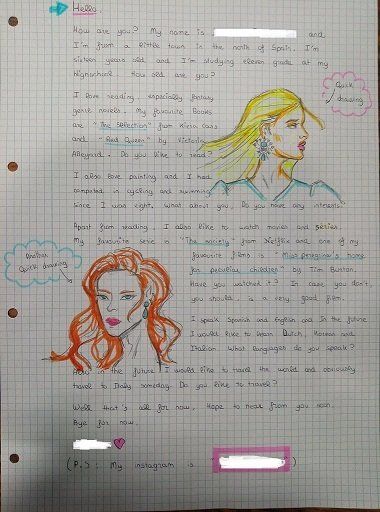 Hello.
How are you? My name is and
I'm from a little town in the north of Spain. I'm
sixteen years old and I'm studying eleven grade at my
highschool. How old are you?
Quick
drawing
I love reading, especially fantasy
genre novels. My favourite Books
are "The Selection" from Kiera Cass
and "Red Queen" by Victoria
Aveyard. Do you like to read?
I also love painting and I had
competed in cycling and swimming
since I was eight, what about you. Do you have any interests?
Apart from reading, I also like to watch movies and series.
My favourite serie is "The society" from Netflix and one of my
favourite films is "Miss peregrine's home
for peculiar children" by Tim Burton.
Have you watched it? In case you don't,
you should, is a very good film.
Another
Quick drawing
I speak Spanish and English and In the future
I would like to learn Dutch, Korean and
Italian. What languages do you speak?
Also in the future I would like to travel the world and obviously
travel to Italy someday. Do you like to travel?
Well that's all for now. Hope to hear from you soon.
Bye for now.
(P.S: My instagram is " ")